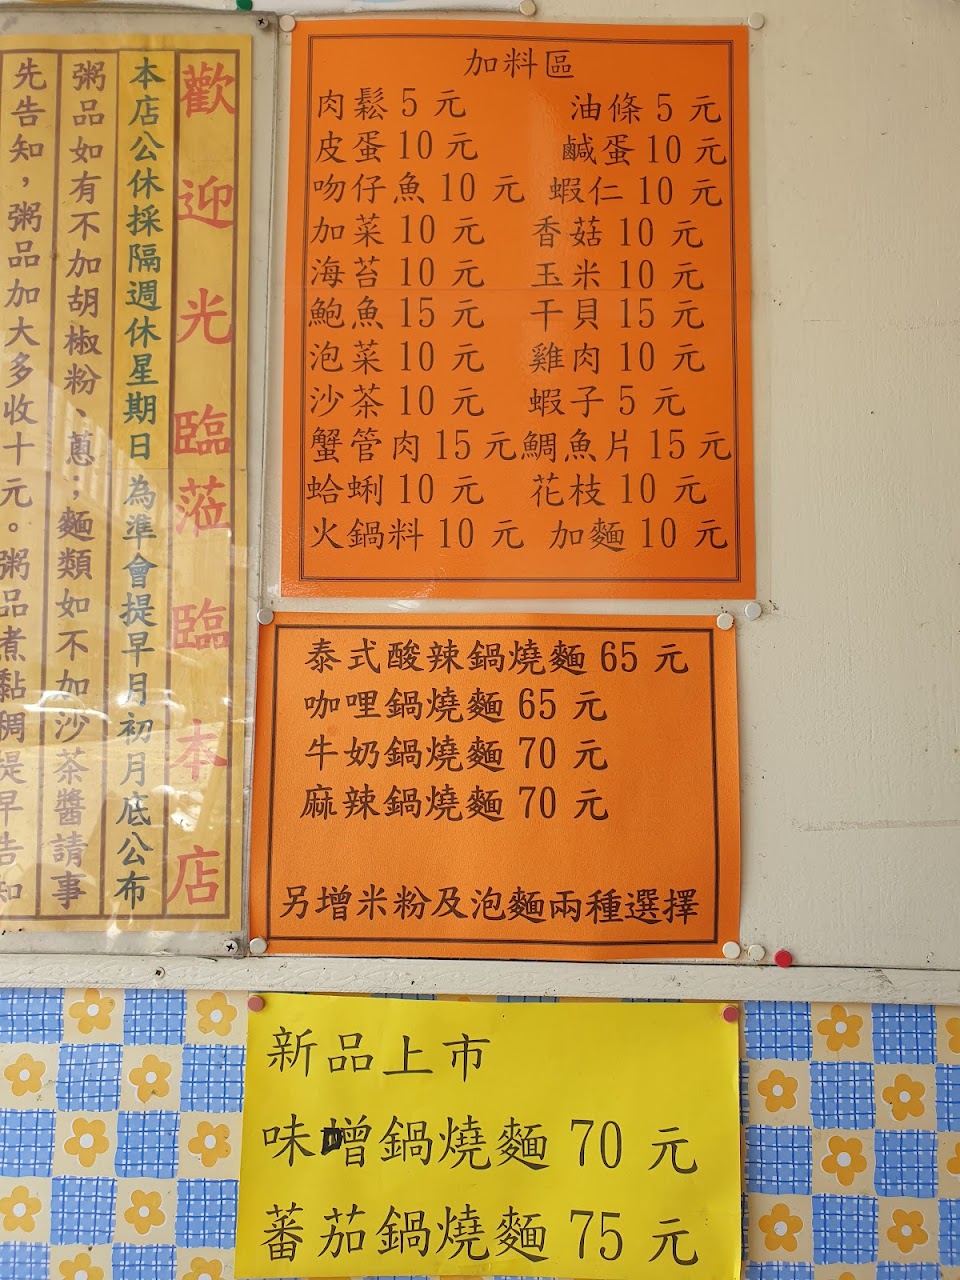 歡迎光臨蒞臨本店
本店公休採隔週休星期日為準會提早月初月底公布
粥品如有不加胡椒粉、蔥；麵類如不加沙茶醬請事
先告知，粥品加大多收十元。粥品煮黏稠提早告知
加料區
肉鬆 5 元 油條 5 元
皮蛋 10 元 鹹蛋 10 元
吻仔魚 10 元 蝦仁 10 元
加菜 10 元 香菇 10 元
海苔 10 元 玉米 10 元
鮑魚 15 元 干貝 15 元
泡菜 10 元 雞肉 10 元
沙茶 10 元 蝦子 5 元
蟹管肉 15 元 鯛魚片 15 元
蛤蜊 10 元 花枝 10 元
火鍋料 10 元 加麵 10 元
泰式酸辣鍋燒麵 65 元
咖哩鍋燒麵 65 元
牛奶鍋燒麵 70 元
麻辣鍋燒麵 70 元
另增米粉及泡麵兩種選擇
新品上市
味噌鍋燒麵 70 元
蕃茄鍋燒麵 75 元